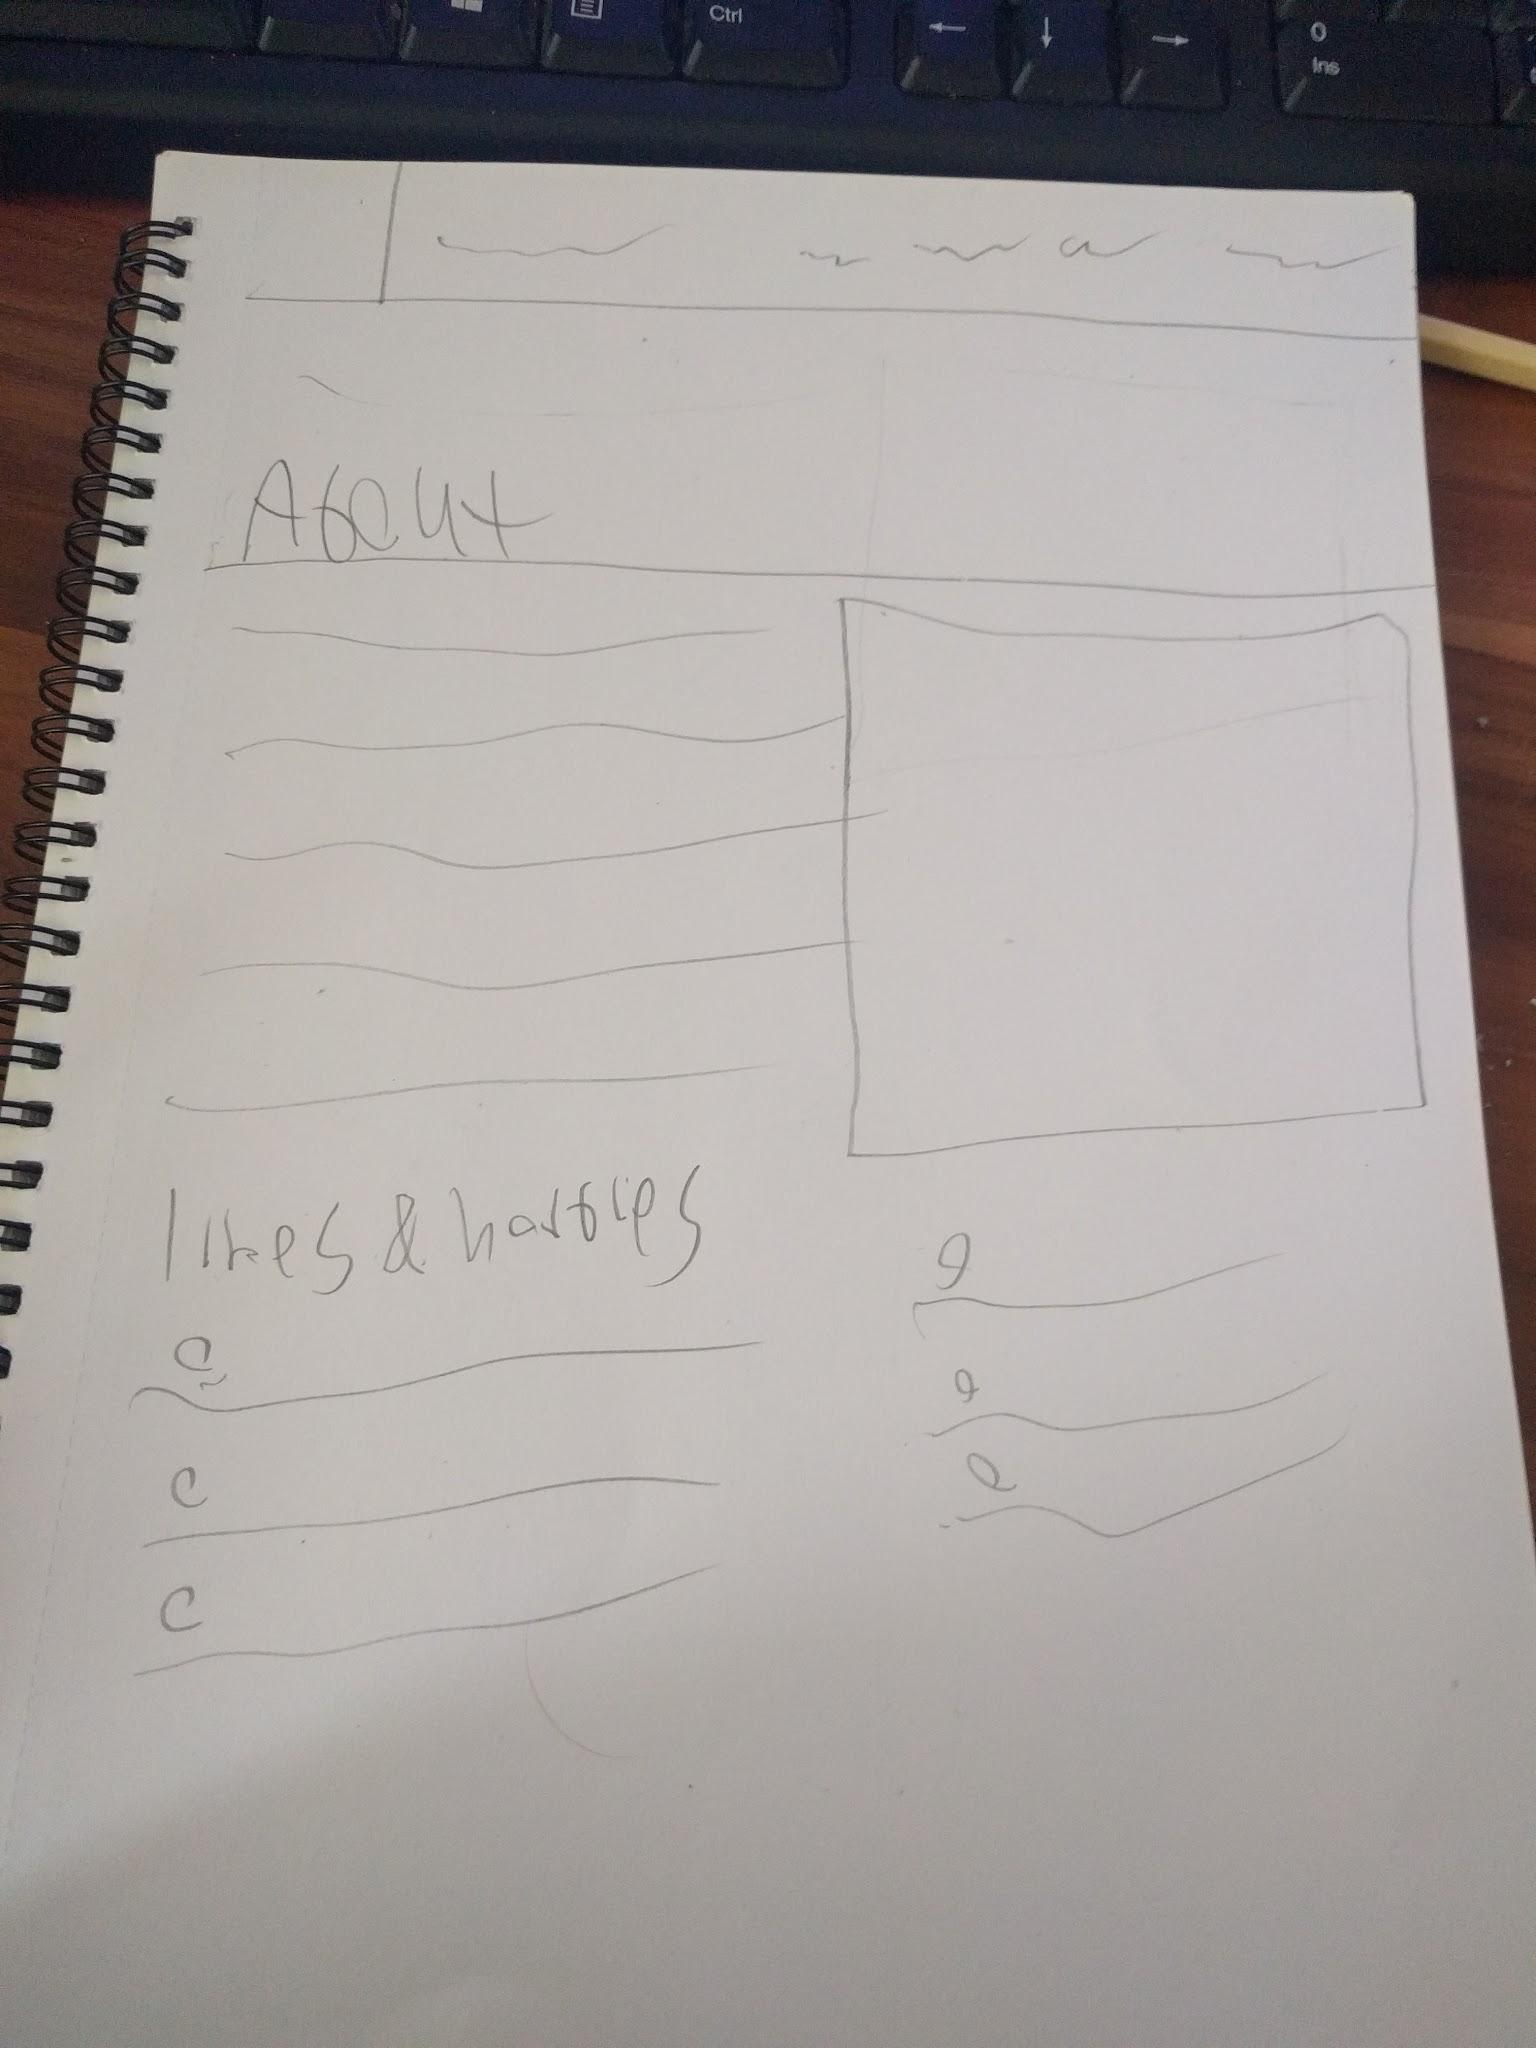 Ctrl
←
↓
→
0
Ins
About
likes & hobbies